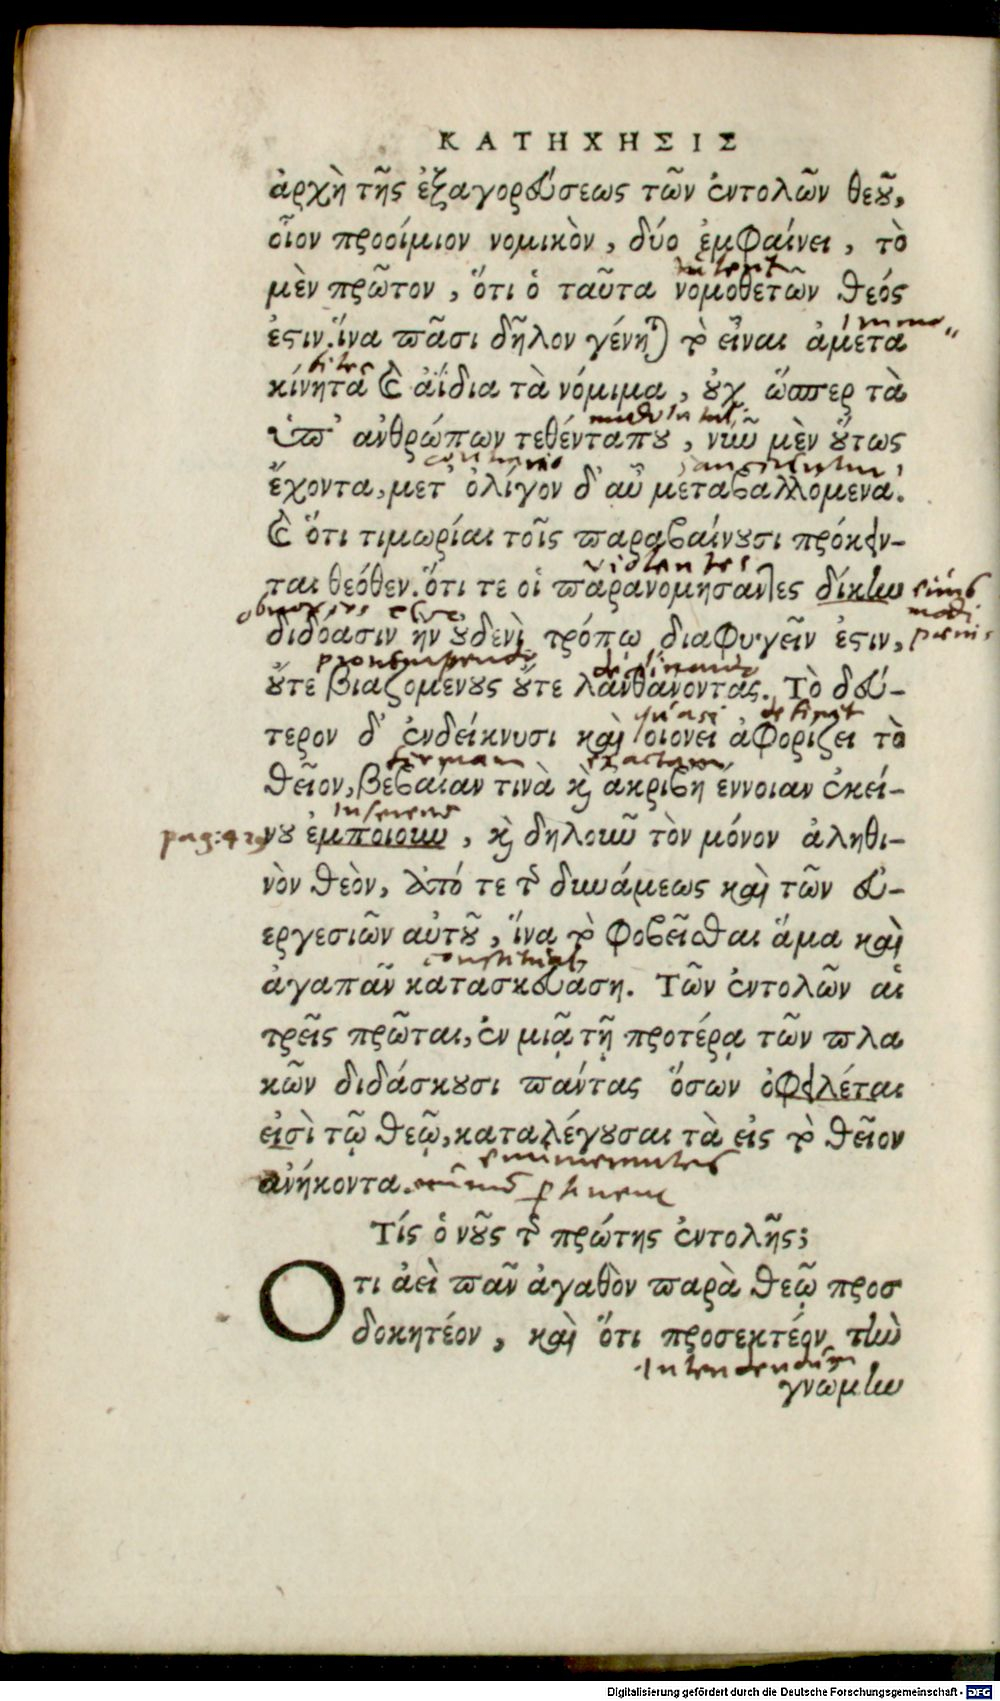 ΚΑΤΗΧΗΣΙΣ
ἀρχὴ τῆς ἐξαγορεύσεως τῶν ἐντολῶν θεοῦ,
οἷον προοίμιον νομικὸν, δύο ἐμφαίνει, τὸ
μὲν πρῶτον, ὅτι ὁ ταῦτα νομοθετῶν θεός
ἐστιν. ἵνα πᾶσι δῆλον γένηται τὸ εἶναι ἀμετα
κίνητα καὶ ἀΐδια τὰ νόμιμα, οὐχ ὥσπερ τὰ
ὑπ᾽ ἀνθρώπων τεθέντα που, νῦν μὲν οὕτως
contrario
ἔχοντα, μετ᾽ ὀλίγον δ᾽ αὖ μεταβαλλόμενα.
καὶ ὅτι τιμωρίαι τοῖς παραβαίνουσι πρόκειν-
violentes
ται θεόθεν. ὅτι τε οἱ παρανομήσαντες δίκην
διδόασιν ἣν οὐδενὶ τρόπῳ διαφυγεῖν ἐστιν,
οὔτε βιαζομένους οὔτε λανθάνοντας. Τὸ δεύ-
quasi definit
τερον δ᾽ ἐνδείκνυσι καὶ οἱονεὶ ἀφορίζει τὸ
firmam exactam
θεῖον, βεβαίαν τινὰ καὶ ἀκριβῆ ἔννοιαν ἐκεί-
inserens
νου ἐμποιοῦν, καὶ δηλοῦν τὸν μόνον ἀληθι-
νὸν θεὸν, ἀπό τε τῆς δυνάμεως καὶ τῶν εὐ-
εργεσιῶν αὐτοῦ, ἵνα τὸ φοβεῖσθαι ἅμα καὶ
constituat
ἀγαπᾶν κατασκευάσῃ. Τῶν ἐντολῶν αἱ
τρεῖς πρῶται, ἐν μιᾷ τῇ προτέρᾳ τῶν πλα
κῶν διδάσκουσι πάντας ὅσων ὀφειλέται
εἰσὶ τῷ θεῷ, καταλέγουσαι τὰ εἰς τὸ θεῖον
enumerantes
ἀνήκοντα.
Τίς ὁ νοῦς τῆς πρώτης ἐντολῆς;
Ὅτι ἀεὶ πᾶν ἀγαθὸν παρὰ θεῷ προσ
δοκητέον, καὶ ὅτι προσεκτέον τὴν
Intendendum
γνώμην
Digitalisierung gefördert durch die Deutsche Forschungsgemeinschaft - DFG